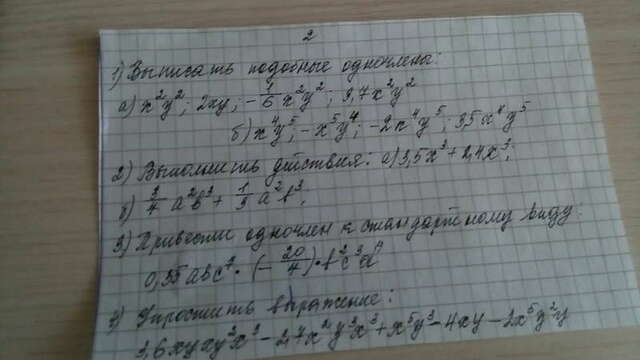 2
1) Выписать подобные одночлены:
а) x²y²; 2xy; -1/6 x²y²; 3,7x²y²
б) x⁴y⁵; -x⁵y⁴; -2x⁴y⁵; 35x⁴y⁵
2) Выполнить действия: а) 3,5x³ + 2,4x³;
б) 3/4 a²b³ + 1/3 a²b³;
3) Привести одночлен к стандартному виду:
0,35abc² · (-20/7) · b²c³d⁴
4) Упростить выражение:
3,6xyxy²x³ - 2,7x²y³x³ + x⁵y³ - 4xy - 2x⁵y²y